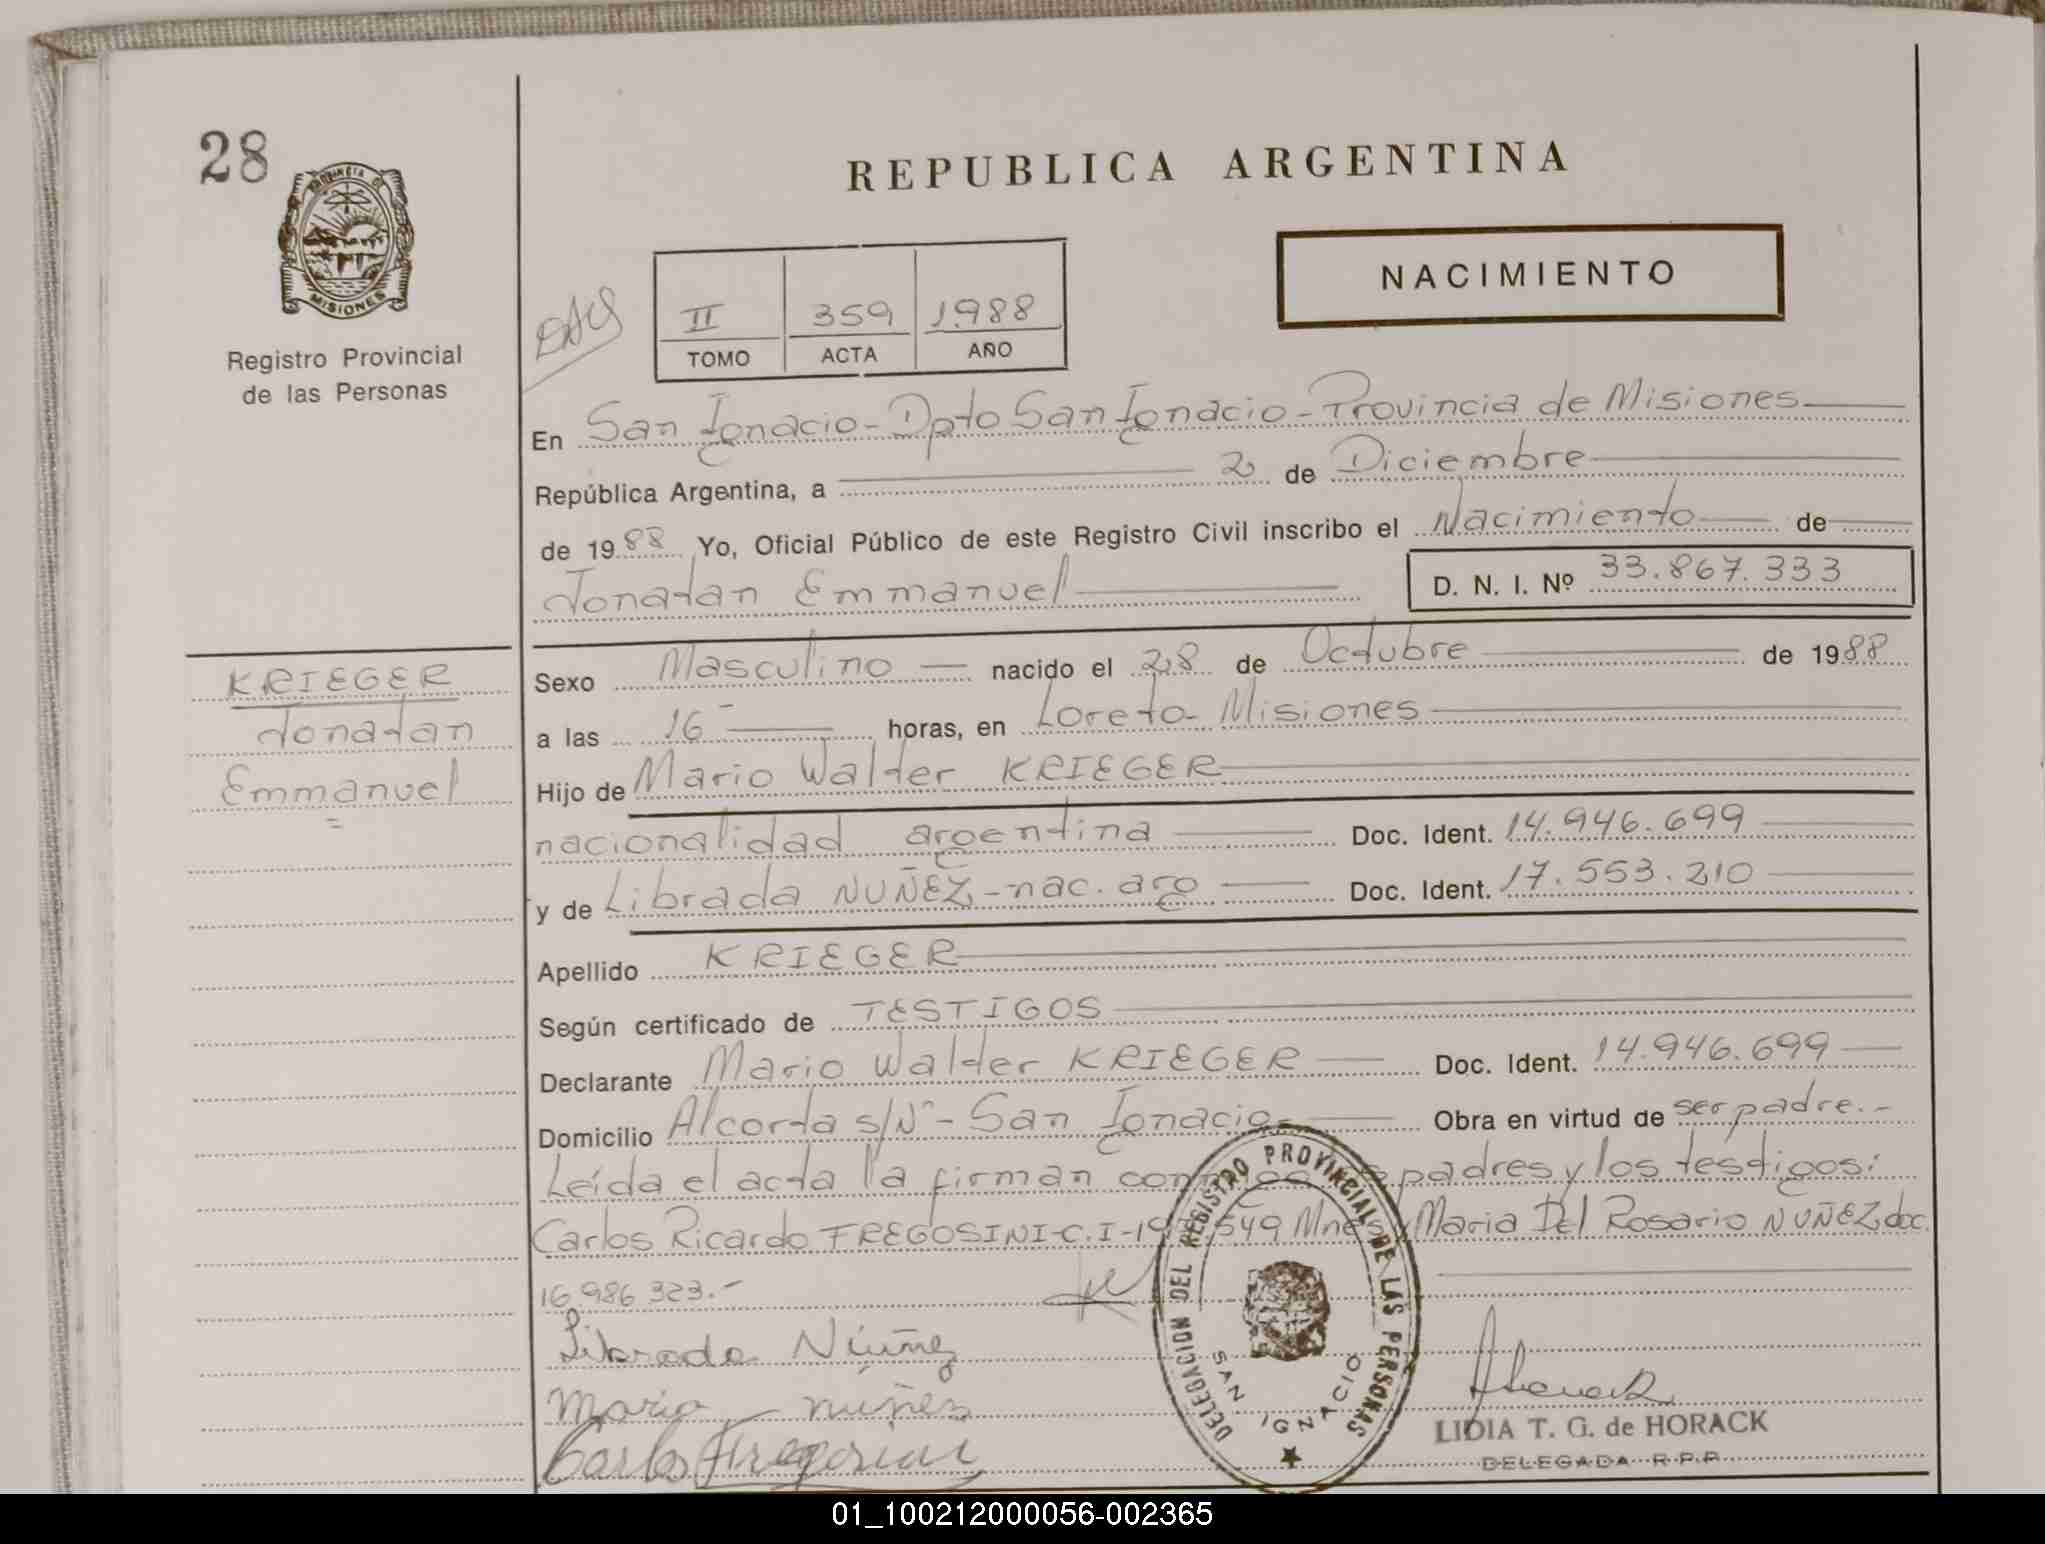 28
PROVINCIA DE
MISIONES
Registro Provincial
de las Personas
REPUBLICA ARGENTINA
NACIMIENTO
II 359 1.988
TOMO ACTA AÑO
En San Ignacio - Dpto San Ignacio - Provincia de Misiones
República Argentina, a 2 de Diciembre
de 1988 Yo, Oficial Público de este Registro Civil inscribo el Nacimiento de
Jonatan Emmanuel D. N. I. Nº 33.867.333
KRIEGER
Jonatan
Emmanuel
Sexo Masculino nacido el 28 de Octubre de 1988
a las 16 horas, en Loreto - Misiones
Hijo de Mario Walter KRIEGER
nacionalidad argentina Doc. Ident. 14.946.699
y de Librada NUÑEZ - nac. arg Doc. Ident. 17.553.210
Apellido KRIEGER
Según certificado de TESTIGOS
Declarante Mario Walter KRIEGER Doc. Ident. 14.946.699
Domicilio Alcorta s/Nº - San Ignacio - Obra en virtud de ser padre.-
Leída el acta la firman los padres y los testigos:
Carlos Ricardo FREGOSINI - C.I - 549 Mnes y Maria Del Rosario NUÑEZ doc.
16.986.323.-
Librada Núñez
Maria Nuñez
Carlos Fregosini
DELEGACION DEL REGISTRO PROVINCIAL DE LAS PERSONAS
SAN IGNACIO
LIDIA T. G. de HORACK
DELEGADA R.P.P.
01_100212000056-002365